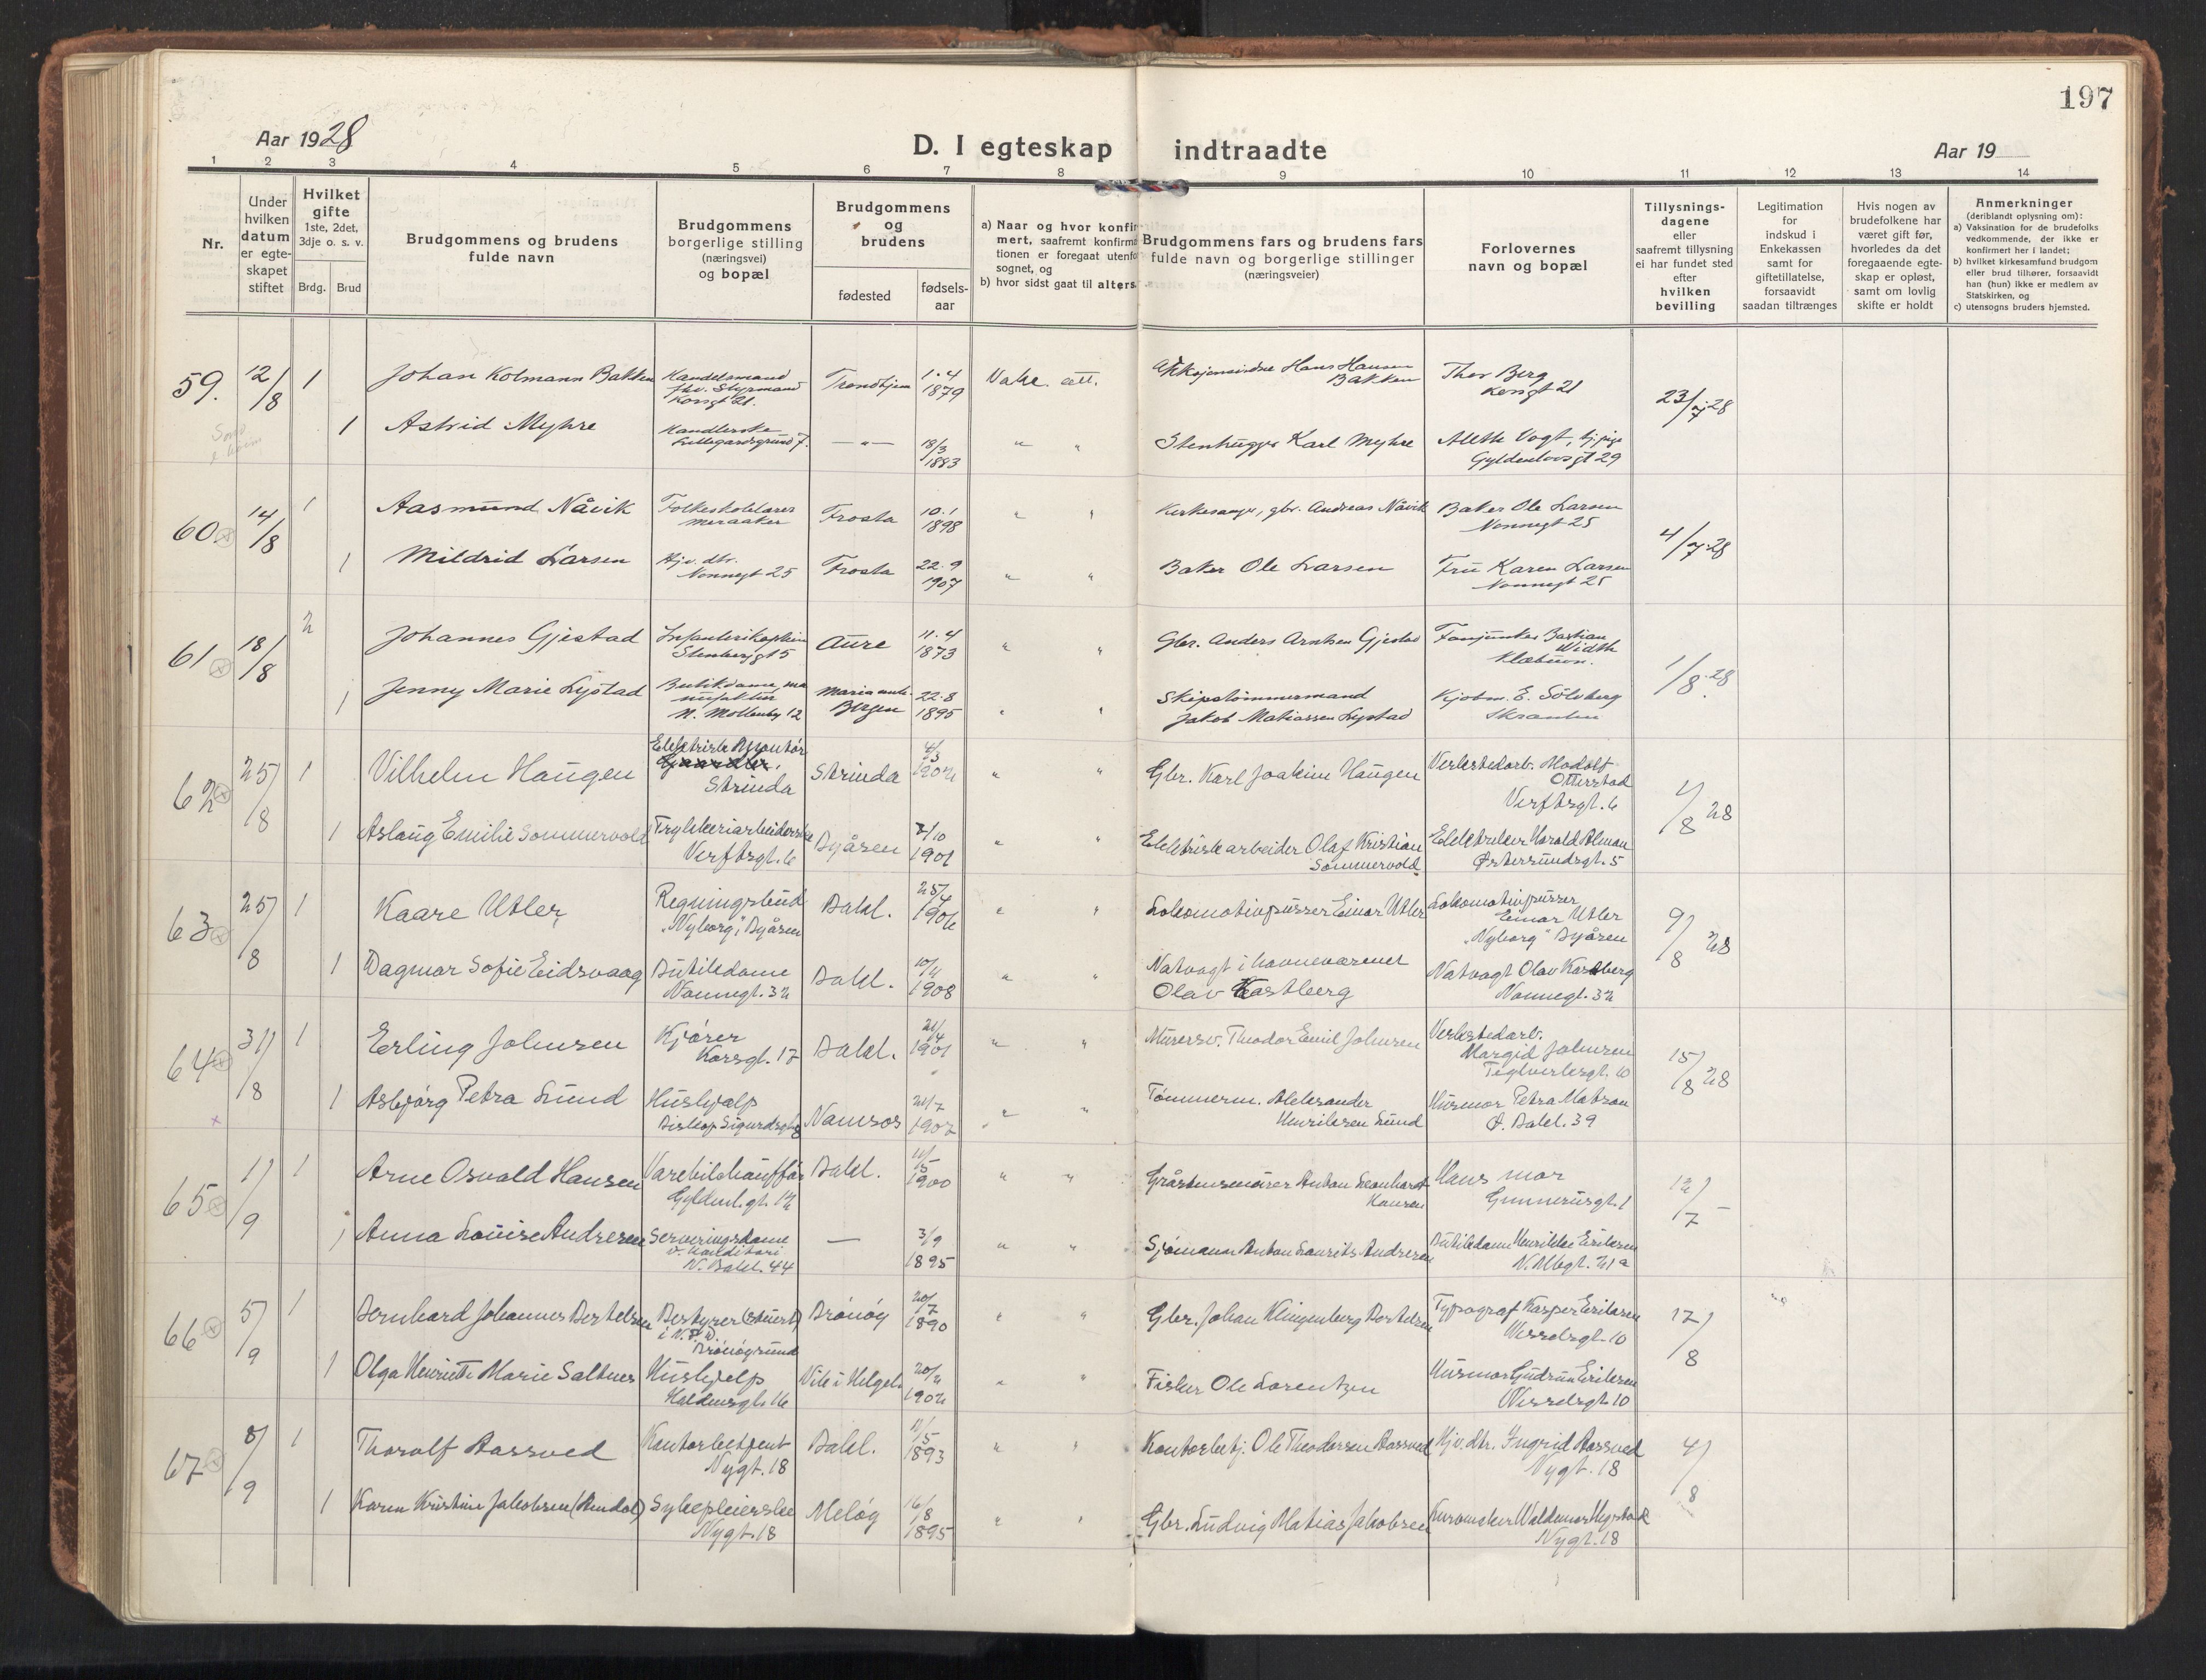 197
Aar 1928
D. I egteskap indtraadte
Aar 19
1 2 3 4 5 6 7 8 9 10 11 12 13 14
Nr.
Under hvilken datum er egteskapet stiftet
Hvilket gifte 1ste, 2det, 3dje o. s. v.
Brdg. Brud
Brudgommens og brudens fulde navn
Brudgommens borgerlige stilling (næringsvei) og bopæl
Brudgommens og brudens
fødested
fødsels-aar
a) Naar og hvor konfir
mert, saafremt konfirma
tionen er foregaat utenfo
sognet, og
b) hvor sidst gaat til alters.
Brudgommens fars og brudens fars
fulde navn og borgerlige stillinger
(næringsveier)
Forlovernes
navn og bopæl
Tillysnings-
dagene
eller
saafremt tillysning
ei har fundet sted
efter
hvilken
bevilling
Legitimation
for
indskud i
Enkekassen
samt for
giftetillatelse,
forsaavidt
saadan tiltrænges
Hvis nogen av
brudefolkene har
været gift før,
hvorledes da det
foregaaende egte-
skap er opløst,
samt om lovlig
skifte er holdt
Anmerkninger
(deriblandt oplysning om):
a) Vaksination for de brudefolks
vedkommende, der ikke er
konfirmert her i landet;
b) hvilket kirkesamfund brudgom
eller brud tilhører, forsaavidt
han (hun) ikke er medlem av
Statskirken, og
c) utensogns bruders hjemsted.
59. 12/8 1 Johan Kolmann Bakken Handelsmand
fhv. Styrmand
Kongt 21. Trondhjem 1.4
1879 Hans Hansen
Bakken Thor Berg
Kongt 21 23/7 28
1 Astrid Myhre Handlerske
Lillegaardsgrund 7. — " — 18/3
1883 " " Stenhugger Karl Myhre Aleth Vogt, hj. pige
Gyldenlovsgt 29
60 14/8 1 Aasmund Nåvik Folkeskolelærer
Meraaker Frosta 10.1
1898 " " Kirkesanger, gbr. Andreas Nåvik Baker Ole Larsen
Nonnegt 25 4/7 28
1 Mildrid Larsen Hjv. dtr.
Nonnegt 25 Frosta 22.9
1907 " " Baker Ole Larsen Fru Karen Larsen
Nonnegt 25
61 18/8 2 Johannes Gjestad Infanterikaptein
Stenbergt 5 Aure 11.4
1873 " " Gbr. Anders Arntsen Gjestad Fanjunker Bastian
Width
Klæbuvn. 1/8 28
1 Jenny Marie Lystad Butikdame, ma
nufaktur
N. Mollenby 12 Maria
Bergen 22.8
1895 " " Skipstømmermand
Jakob Matiassen Lystad Kjobm. E. Sölvberg
62 25/8 1 Vilhelm Haugen Elektrisk Montør
Strinda Strinda 4/3
1902 " " Gbr. Karl Joakim Haugen Verkstedarb. Modolf
Otterstad
Verftsgt. 6 1/8 28
1 Aslaug Emilie Sommervold Trykkeriarbeiderske
Verftsgt. 6 Byåsen 2/10
1901 " " Elektrisk arbeider Olaf Kristian
Sommervold Elektriker Harald Alman
Østersundsgt. 5
63 25/8 1 Kaare Utler Regningsbud
"Nyborg", Byåsen Bakl. 25/4
1906 " " Lokomotivpusser Einar Utler Lokomotivpusser
Einar Utler
"Nyborg" Byåsen 9/8 28
1 Dagmar Sofie Eidsvaag Butikdame
Nonnegt. 32 Bakl. 10/11
1908 " " Natvagt i havnevæsenet
Olav Kastberg Natvagt Olav Kastberg
Nonnegt. 32
64 31/8 1 Erling Johnsen Kjører
Korsgt. 17 Bakl. 21/4
1901 " " Murersv. Theodor Emil Johnsen Verkstedarb.
Margid Johnsen
Teglverksgt. 10 15/8 28
1 Asbjørg Petra Lund Hushjælp
Biskop Sigurdsgt 8 Namsos 21/7
1907 " " Tømmerm. Aleksander
Henriksen Lund Husmor Petra Matson
Ø. Bakl. 39
65 1/9 1 Arne Osvald Hansen Varebilchauffør
Gyldenl. gt. 12 Bakl. 11/5
1900 " " Gråstensmurer Anton Leonhardt
Hansen Hans mor
Gunnerusgt. 1 12/7 -
1 Anna Louise Andresen Serveringsdame
v. konditori
N. Bakl. 44 — 3/9
1895 " " Sjømann Anton Laurits Andresen Butikdame Henrikke Eriksen
N. Allegt. 21 a
66 5/9 1 Bernhard Johannes Bertelsen Bestyrer (Stuert)
Brönöysund Brönöy 20/7
1890 " " Gbr. Johan Klingenberg Bertelsen Typograf Kasper Eriksen
Wesselsgt. 10 17/8
1 Olga Henriette Marie Saltnes Hushjelp
Kaldnesgt. 16 Vik i Helgel. 20/2
1902 " " Fisker Ole Lorentzen Husmor Gudrun Eriksen
Wesselsgt. 10
67 8/9 1 Thoralf Aassved Kontorbetjent
Nygt. 18 Bakl. 11/5
1893 " " Kontorbetj. Ole Theodorsen Aassved Hjv. dtr. Ingrid Aassved
Nygt. 18 4/8
1 Karen Kristine Jakobsen (Amdal) Sykepleierske
Nygt. 18 Meløy 16/8
1895 " " Gbr. Ludvig Matias Jakobsen Kurvmaker Waldemar Hegstad
Nygt. 18